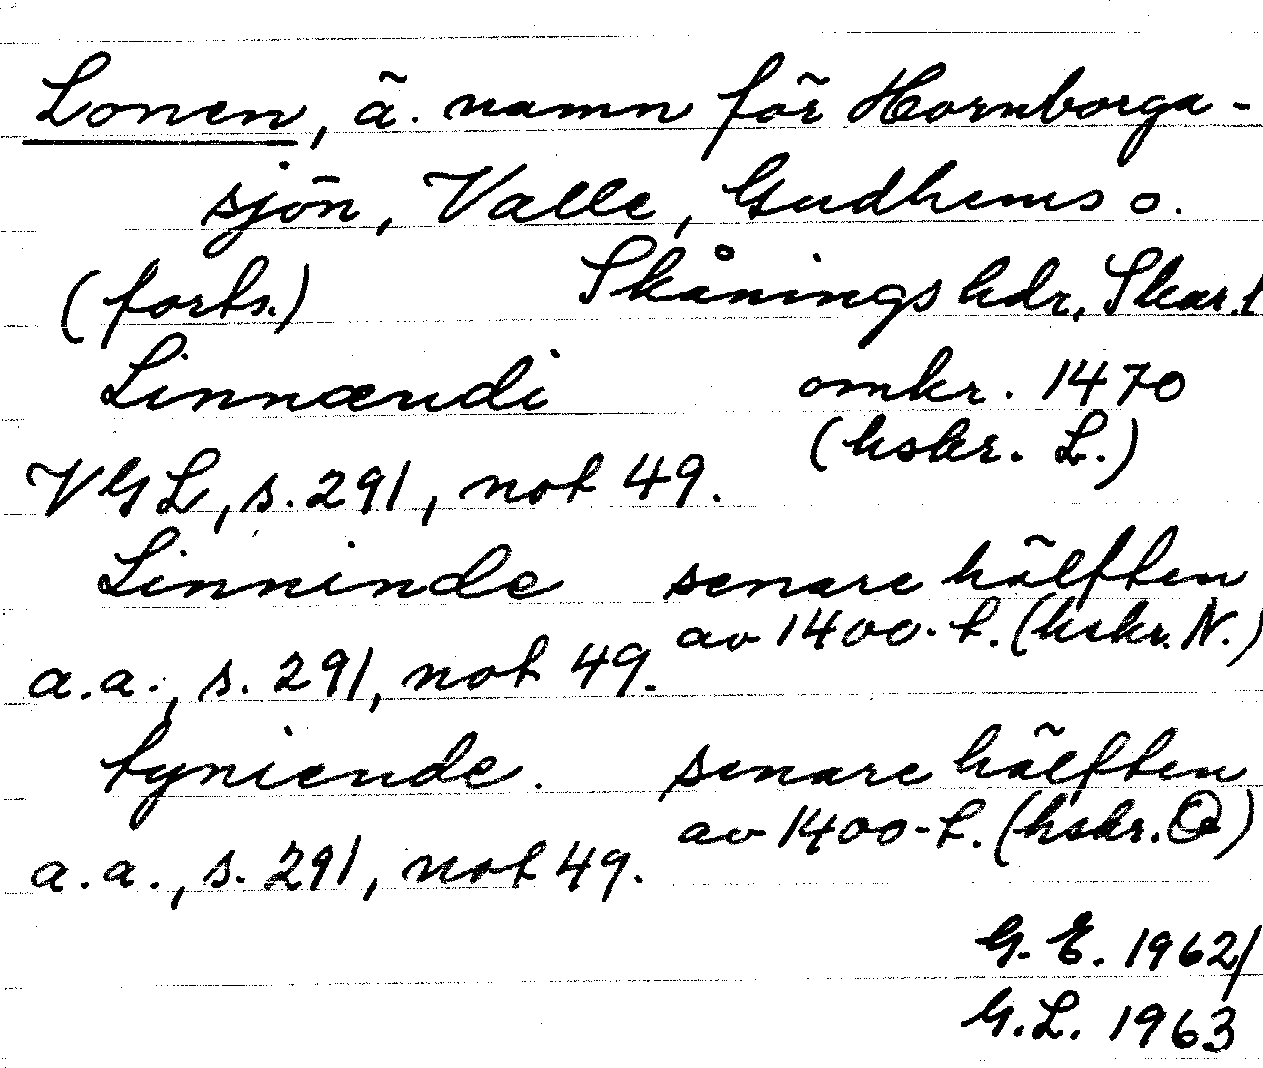 Lonen, ä. namn för Hornborga-
sjön, Valle, Gudhems o.
(forts.) Skånings hdr, Skar. l
Linnændi omkr. 1470
(hskr. L.)
VGL, s. 291, not 49.
Linninde senare hälften
av 1400-t. (hskr. N.)
a.a., s. 291, not 49.
tyniende. senare hälften
av 1400-t. (hskr. O)
a.a., s. 291, not 49.
G. E. 1962/
G.L. 1963